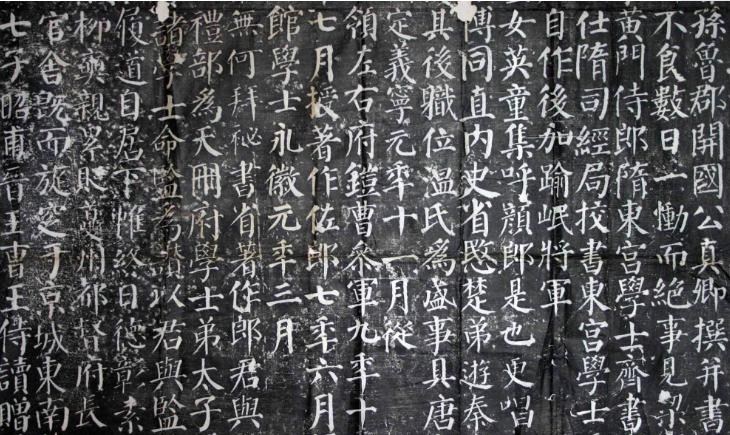 孫魯郡開國公真卿撰并書
不食數日一慟而絕事見梁
黃門侍郎隋東宮學士齊書
仕隋司經局挍書東宮學士
自作後加踰岷將軍
女英童集呼顏郎是也更唱
傳同直內史省愍楚弟遊秦
其後職位溫氏為盛事具唐
定義寧元秊十一月從
領左右府鎧曹參軍九秊十
七月授著作佐郎七秊六月
館學士永徽元秊三月
無何拜秘書省著作郎君與
禮部為天冊府學士弟太子
諸學士命監為讚以君與監
履道日居下帷終日德彰素
柳奭親累貶夔州都督府長
官舍既而旋窆于京城東南
七子昭甫晉王曹王侍讀贈